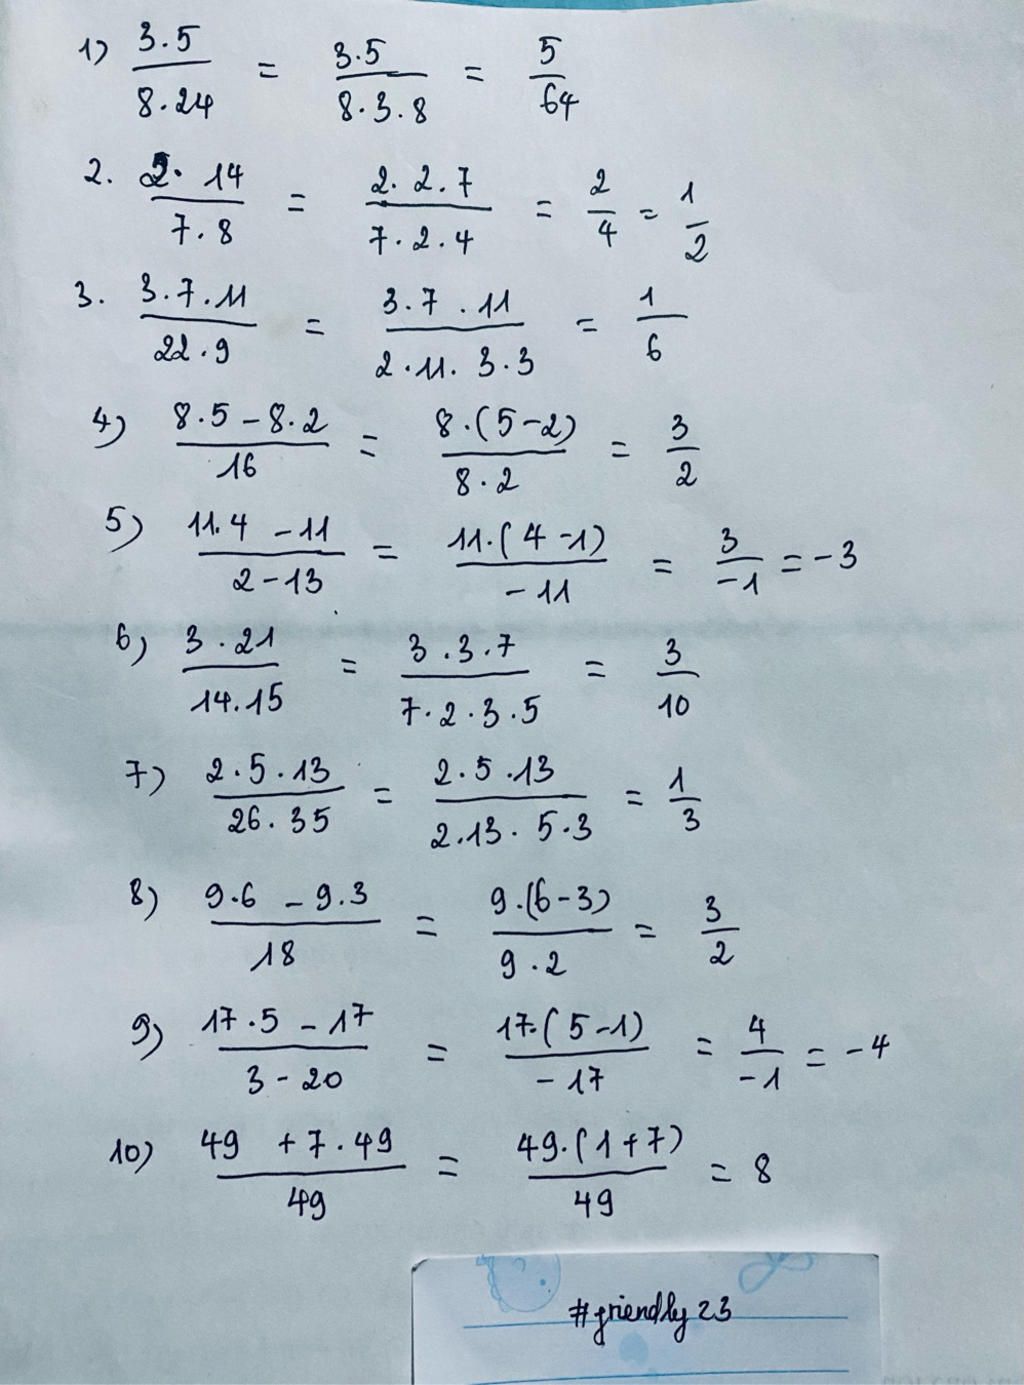 1) 3.5/8.24 = 3.5/8.3.8 = 5/64
2. 2.14/7.8 = 2.2.7/7.2.4 = 2/4 = 1/2
3. 3.7.11/22.9 = 3.7.11/2.11.3.3 = 1/6
4) 8.5-8.2/16 = 8.(5-2)/8.2 = 3/2
5) 11.4-11/2-13 = 11.(4-1)/-11 = 3/-1 = -3
6) 3.21/14.15 = 3.3.7/7.2.3.5 = 3/10
7) 2.5.13/26.35 = 2.5.13/2.13.5.3 = 1/3
8) 9.6-9.3/18 = 9.(6-3)/9.2 = 3/2
9) 17.5-17/3-20 = 17.(5-1)/-17 = 4/-1 = -4
10) 49+7.49/49 = 49.(1+7)/49 = 8
#friendly23